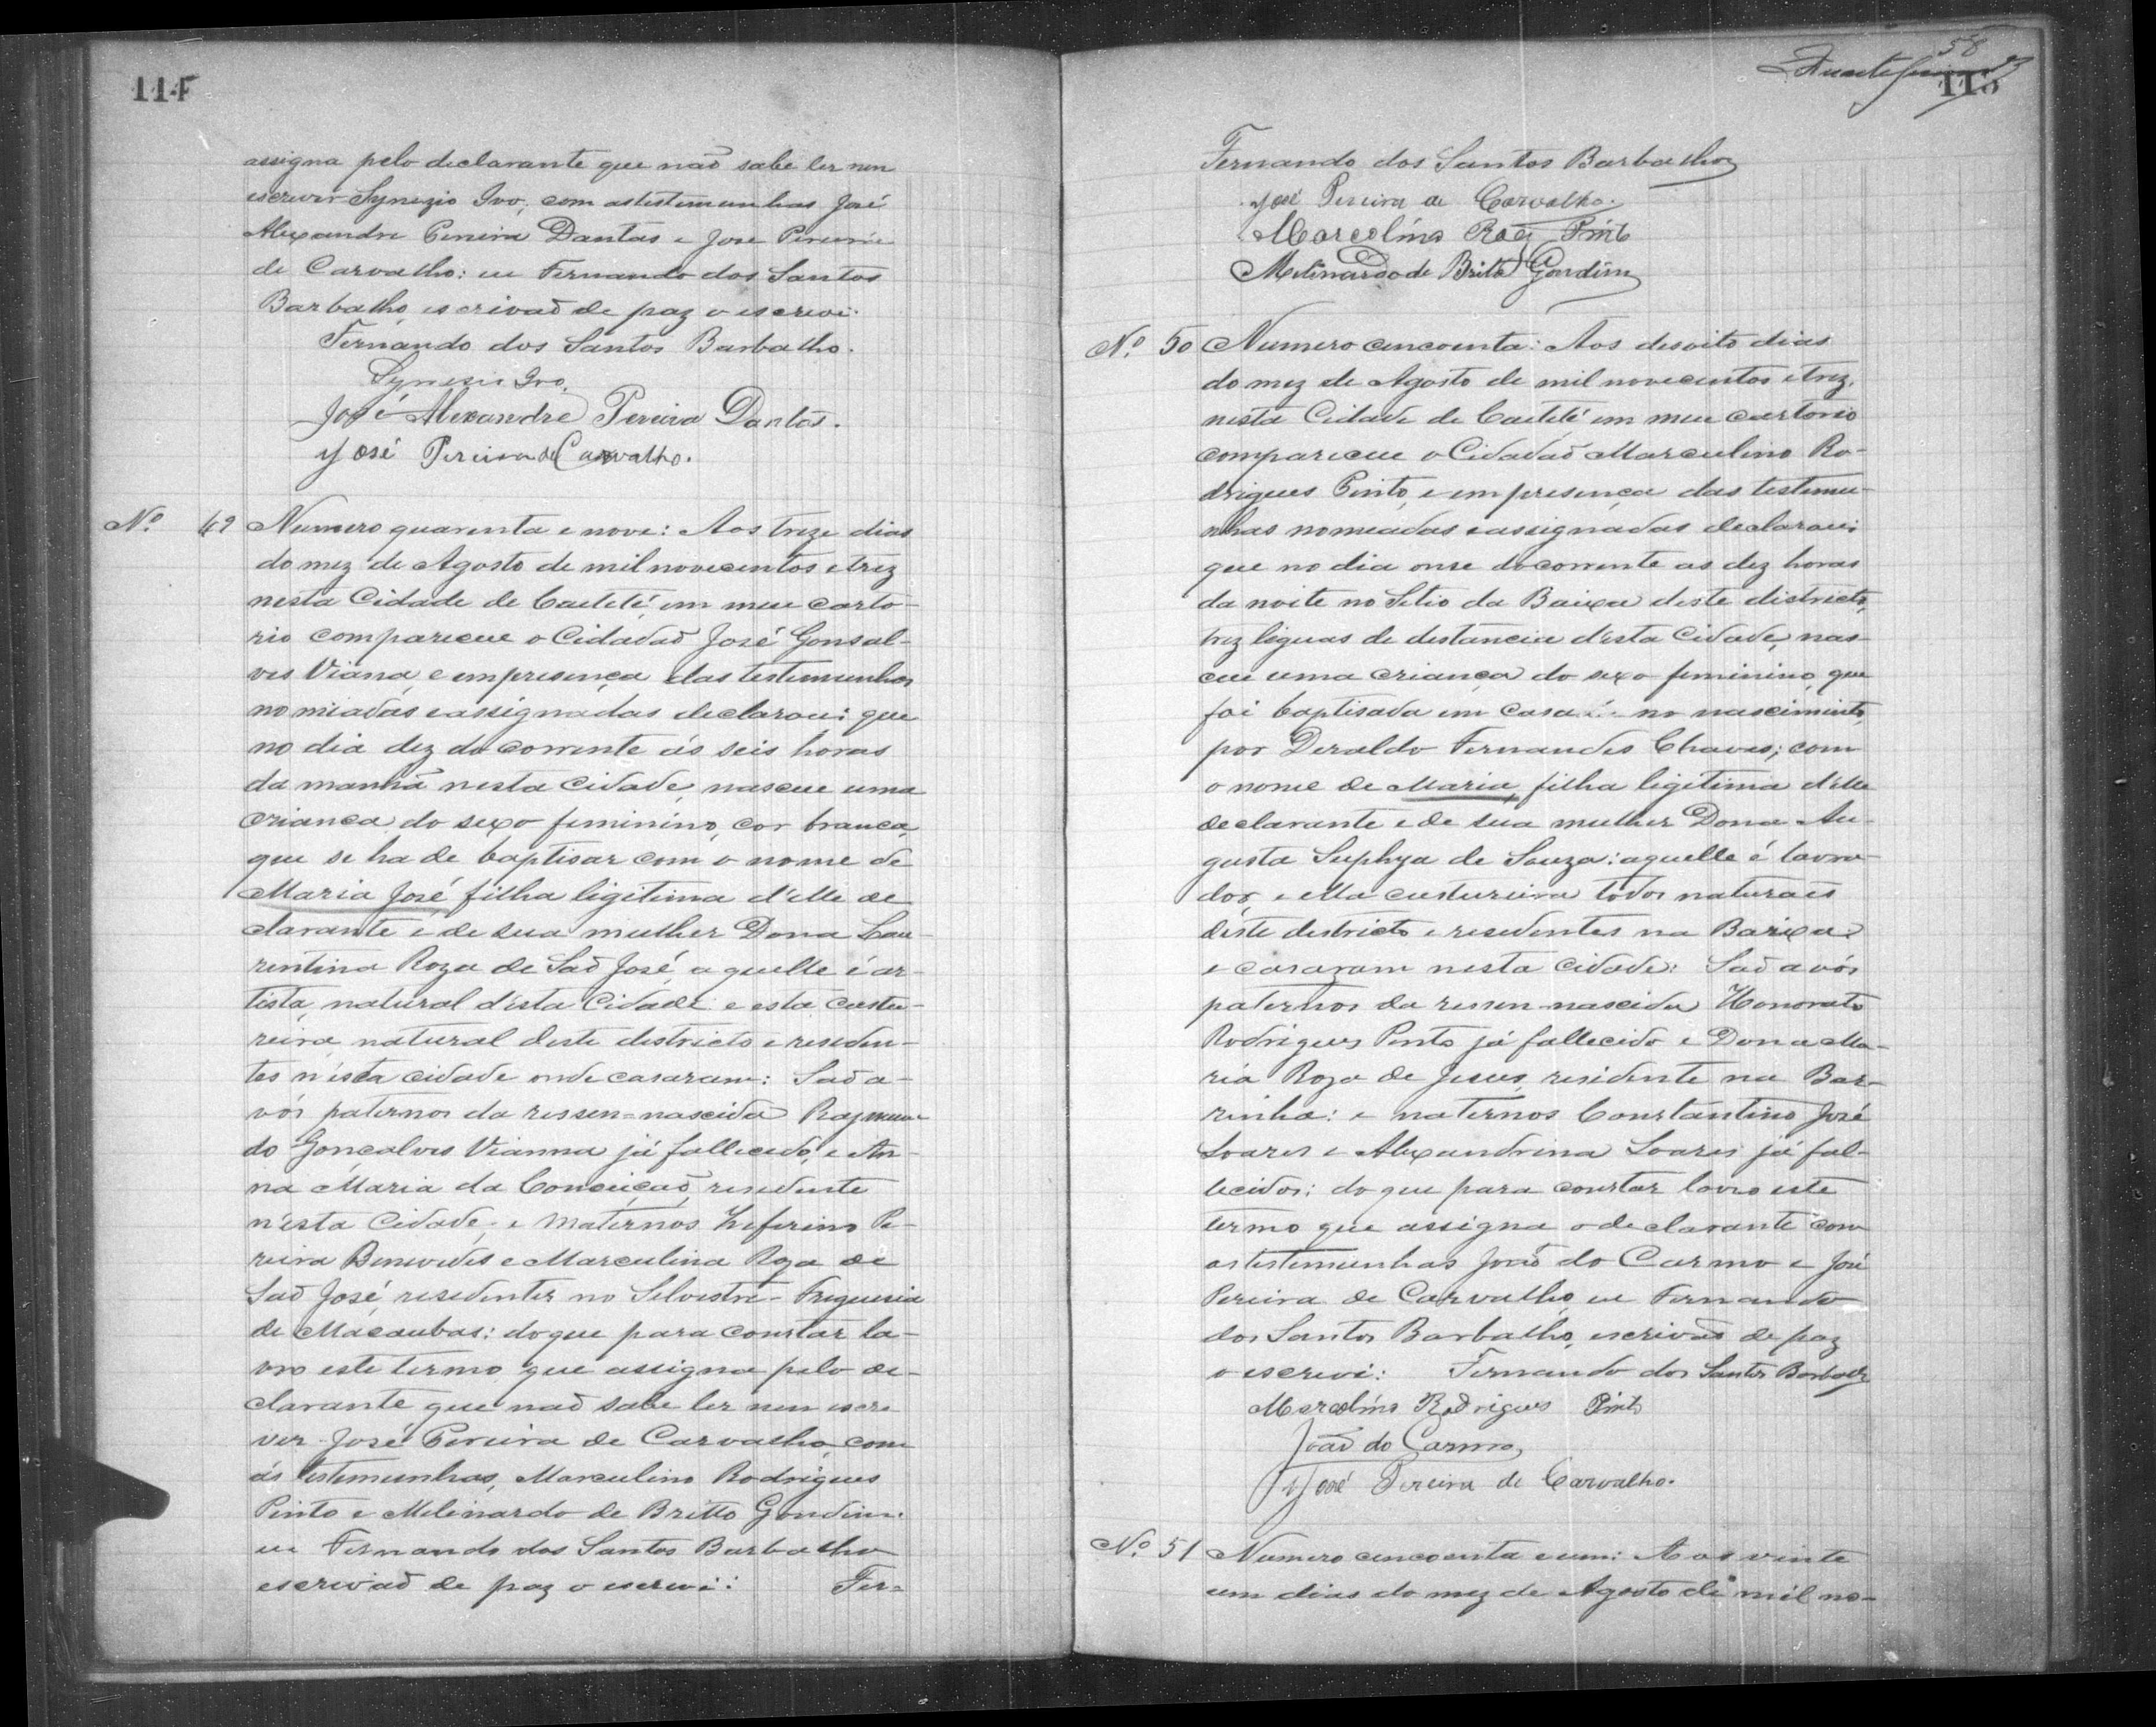 114
assigna pelo declarante que não sabe ler nem
escrever Synezio Ivo, com as testemunhas José
Alexandre Pereira Dantas e Jose Pereira
de Carvalho: eu Fernando dos Santos
Barbalho, escrivaõ de paz o escrevi:
Fernando dos Santos Barbalho.
Synesio Ivo.
José Alexandre Pereira Dantas.
José Pereira de Carvalho.
Nº 49 Numero quarenta e nove: Aos treze dias
do mez de Agosto de mil novecentos e trez
nesta Cidade de Caeteté em meu carto-
rio compareceu o Cidadaõ José Gonsal-
ves Viana, e em presença das testemunhas
nomiadas e assignadas declarou: que
no dia dez do corrente ás seis horas
da manhã nesta cidade, nasceu uma
criança do sexo feminino, cor branca,
que se ha de baptisar com o nome de
Maria José, filha ligitima d'elle de-
clarante e de sua mulher Dona Lau-
rentina Roza de Saõ José, aquelle é ar-
tista, natural d'esta Cidade e esta custu-
reira, natural deste districto e residen-
tes n'esta cidade onde casaram: Saõ a-
vós paternos da ressen-nascida Raymun-
do Gonçalves Vianna já fallecido, e An-
na Maria da Conceiçaõ, residente
n'esta Cidade, e maternos Zeferino Pe-
reira Benevides e Marculina Roza de
Saõ José, residentes no Silvestre - Freguesia
de Macaubas: do que para constar la-
vro este termo, que assigna pelo de-
clarante que naõ sabe ler nem escre-
ver José Pereira de Carvalho, com
ás testimunhas, Marculino Rodrigues
Pinto e Melinardo de Britto Gondim.
eu Fernando dos Santos Barbalho
escrivaõ de paz o escrevi: Fer-
58
115
Fernando dos Santos Barbalho
José Pereira de Carvalho.
Marcolino Roiz Pinto
Melinardo de Brito Gondim
Nº 50 Numero cincoenta: Aos desoito dias
do mez de Agosto de mil novecentos e trez,
nesta Cidade de Caeteté em meu cartorio
compareceu o Cidadaõ Marculino Ro-
drigues Pinto, e em presença das testemu-
nhas nomeadas e assignadas declarou:
que no dia onse do corrente as dez horas
da noite no Sitio da Baixa deste districto,
trez leguas de distancia d'esta Cidade, nas-
ceu uma criança do sexo feminino, que
foi baptisada em casa no nascimento
por Deraldo Fernandes Chaves; com
o nome de Maria, filha ligitima d'elle
declarante e de sua mulher Dona Au-
gusta Suphya de Souza: aquelle é lavra-
dor, e ella custureira todos naturaes
d'este districto e residentes na Baixa
e casaram nesta cidade: Saõ avós
paternos da ressen-nascida Honorato
Rodrigues Pinto já fallecido e Dona Ma-
ria Roza de Jesus, residente na Bar-
rinha: e maternos Constantino José
Soares e Alexandrina Soares já fal-
lecidos: do que para constar lavro este
termo que assigna o declarante com
as testimunhas Joaõ do Carmo e José
Pereira de Carvalho, eu Fernando
dos Santos Barbalho, escrivaõ de paz
o escrevi: Fernando dos Santos Barbalho
Marcolino Rodrigues Pinto
Joaõ do Carmo,
José Pereira de Carvalho.
Nº 51 Numero cincoenta e um: Aos vinte
um dias do mez de Agosto de mil no-